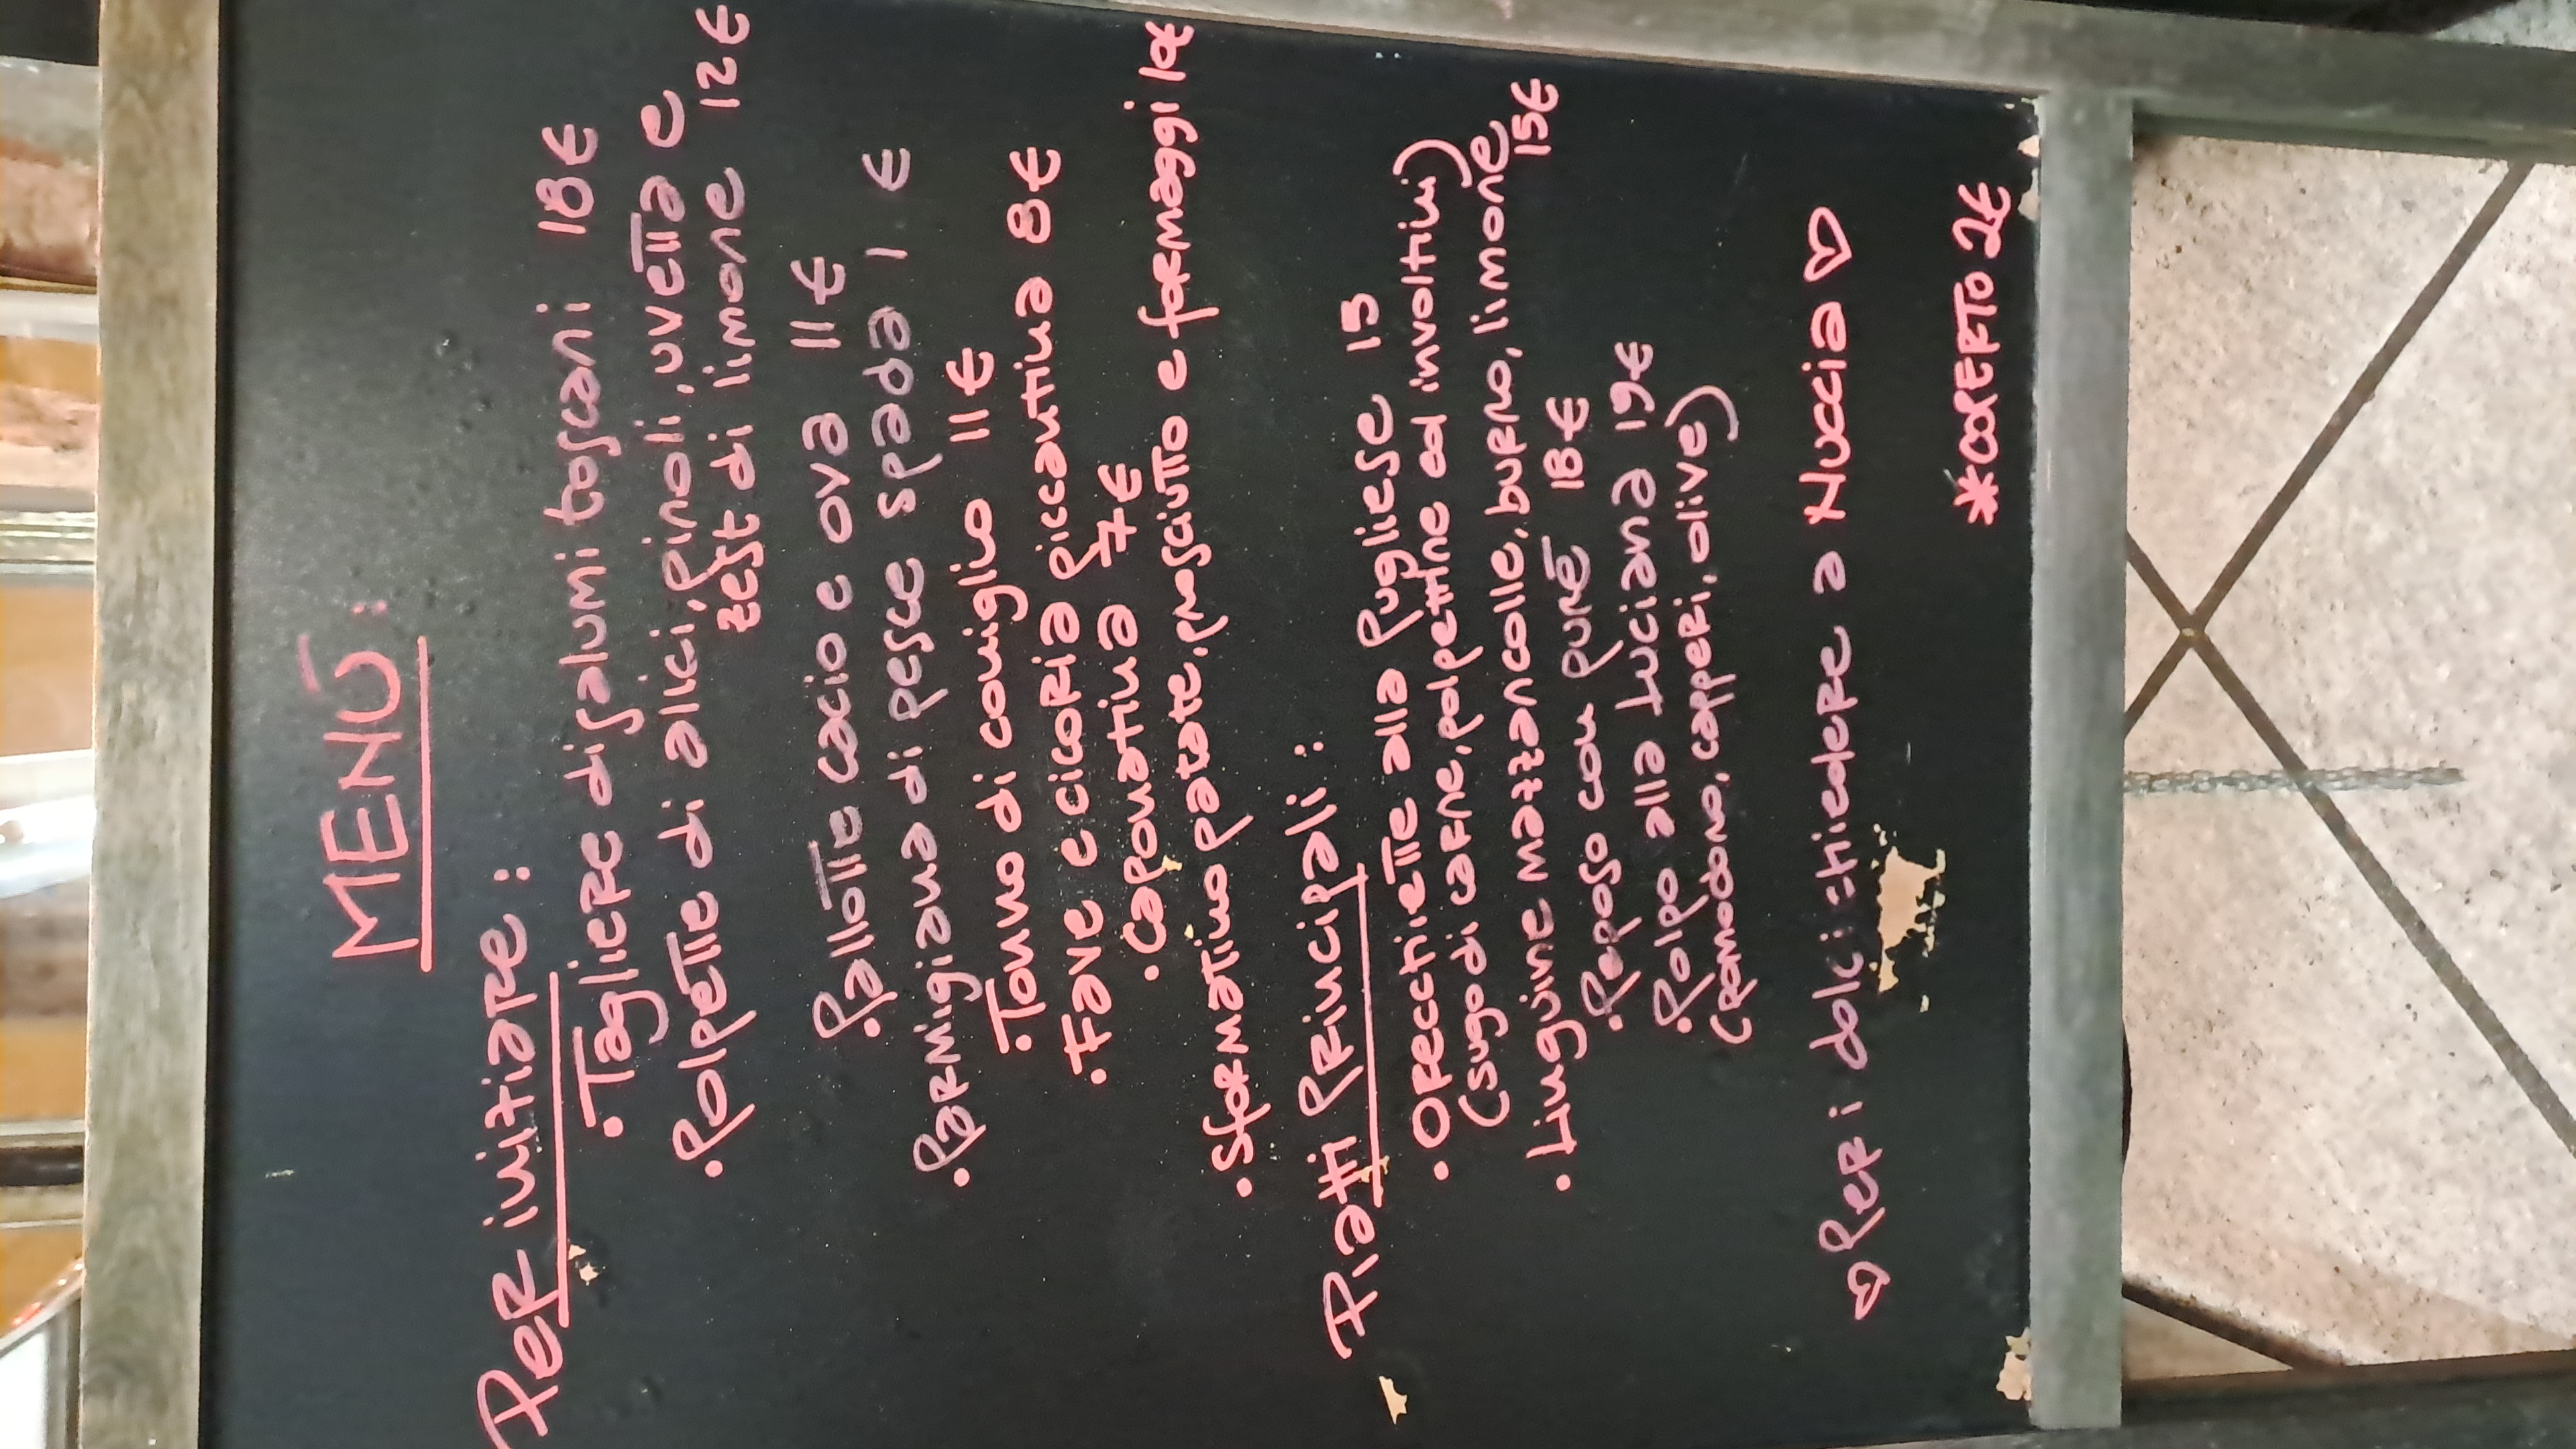 MENÚ:
Per iniziare:
• Tagliere di salumi toscani 18€
• Polpette di alici, pinoli, uvetta e
zest di limone 12€
• Pallotte cacio e ova 11€
• Parmigiana di pesce spada 1 €
• Tonno di coniglio 11€
• Fave e cicoria piccantina 8€
• Caponatina 7€
• Sformatino patate, prosciutto e formaggi 10€
Piatti Principali:
• Orecchiette alla pugliese 15
(sugo di carne, polpettine ed involtini)
• Linguine mazzancolle, burro, limone
15€
• Peposo con purè 18€
• Polpo alla Luciana 19€
(pomodoro, capperi, olive)
♡ Per i dolci: chiedere a Nuccia ♡
*COPERTO 2€